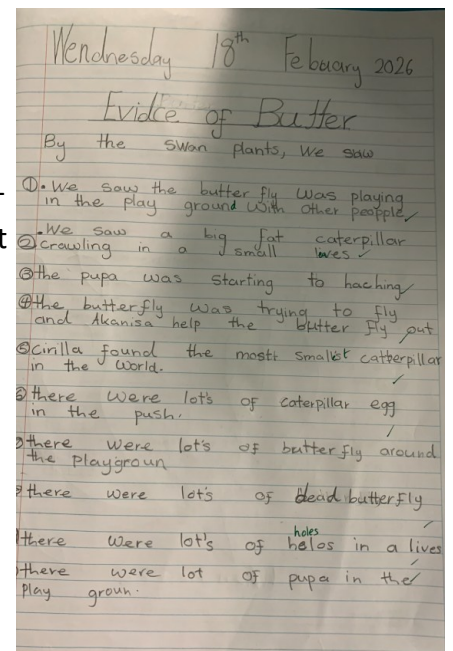 Wendnesday 18th Febuary 2026
Evidce of Butter
By the swan plants, We saw
① . We saw the butter fly was playing
in the play ground with other peopple
② . We saw a big fat caterpillar
crawling in a small lives
③ the pupa was starting to haching
④ the butterfly was trying to fly
and Akanisa help the butter fly out
⑤ cirilla found the mostt smallest catterpillar
in the world.
⑥ there were lot's of caterpillar egg
in the push.
there were lot's of butterfly around
the playgroun
there were lot's of dead butterfly
holes
there were lot's of helos in a lives
there were lot of pupa in the
play groun.